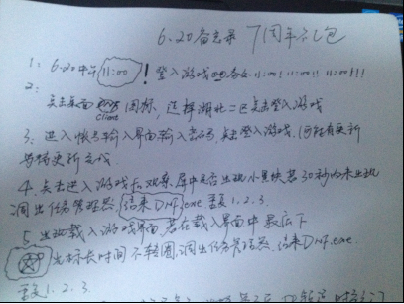 6.20备忘录 7周年礼包
1. 6.20中午 11:00 ! 登入游戏 11:00! 11:00!! 11:00!!!
2.
点击桌面 图标, 选择湖北二区点击登入游戏
client
3. 进入帐号输入界面输入密码, 点击登入游戏.
等待更新完成
4. 点击进入游戏后, 观察屏中是否出现小黑块若30秒内未出现
调出任务管理器, 结束DNF.exe 重复1.2.3.
5. 出现载入游戏界面, 若在载入界面中最后下
光标长时间不转圈, 调出任务管理器, 结束DNF.exe.
重复1.2.3.